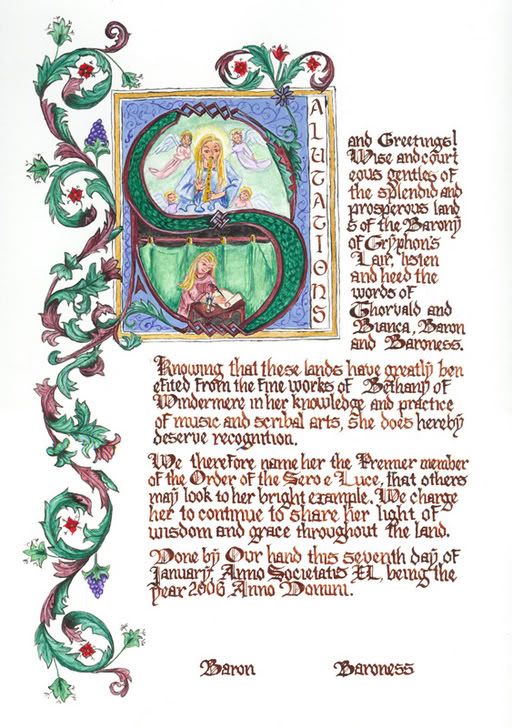 SALUTATIONS
and Greetings!
Wise and court
eous gentles of
the splendid and
prosperous land
s of the Barony
of Gryphon's
Lair, listen
and heed the
words of
Thorvald and
Bianca, Baron
and Baroness.
Knowing that these lands have greatly ben
efited from the fine works of Bethany of
Windermere in her knowledge and practice
of music and scribal arts, She does hereby
deserve recognition.
We therefore name her the Premier member
of the Order of the Sero e Luce, that others
may look to her bright example. We charge
her to continue to share her light of
wisdom and grace throughout the land.
Done by Our hand this seventh day of
January, Anno Societatis XL, being the
year 2006 Anno Domini.
Baron Baroness